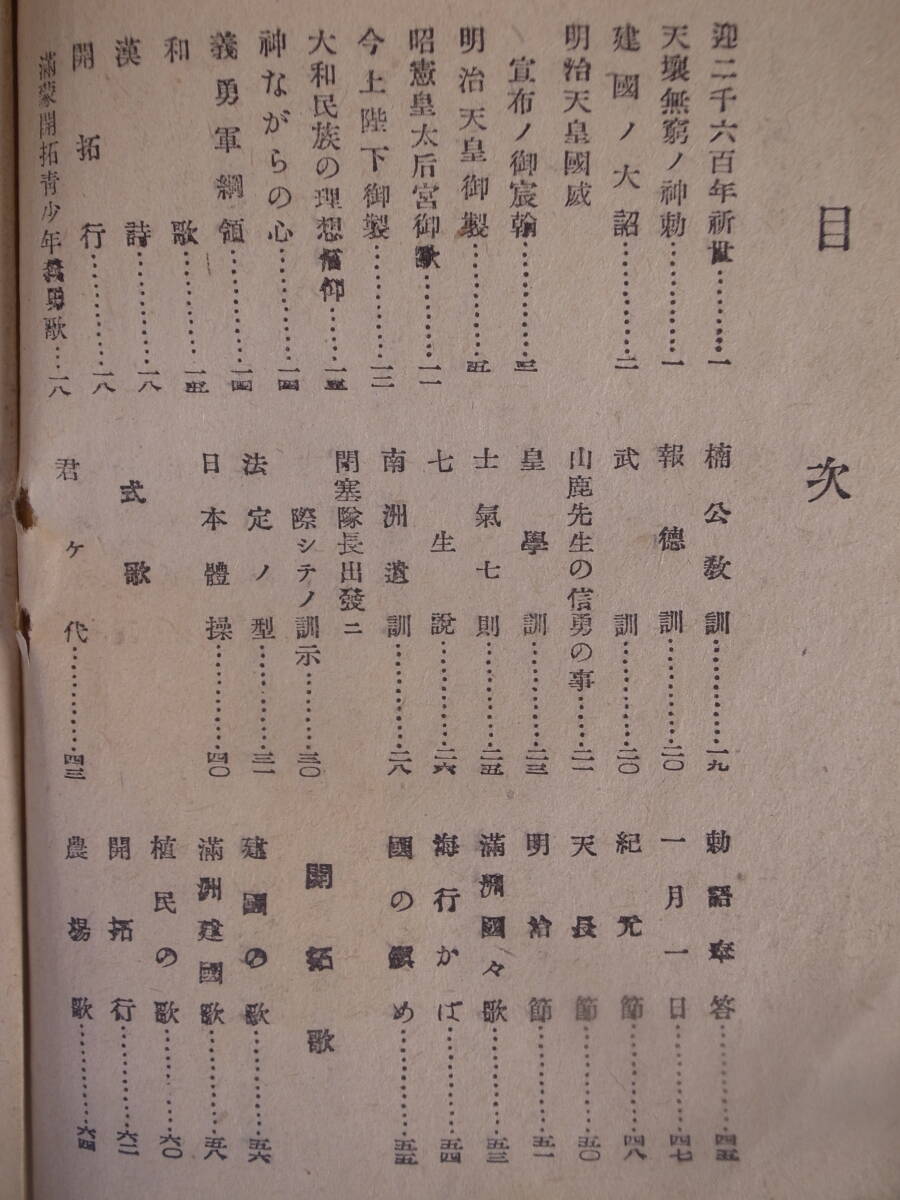 目次
迎二千六百年祈世…………一
天壤無窮ノ神勅…………一
建國ノ大詔…………二
明治天皇國威
宣布ノ御宸翰…………三
明治天皇御製…………五
昭憲皇太后宮御歌…………一一
今上陛下御製…………一二
大和民族の理想信仰……一三
神ながらの心…………一四
義勇軍綱領…………一四
和歌…………一五
漢詩…………一八
開拓行…………一八
滿蒙開拓靑少年義勇歌…一八
楠公敎訓…………一九
報德訓…………二〇
武訓…………二〇
山鹿先生の信勇の事……二一
皇學訓…………二三
士氣七則…………二五
七生說…………二六
南洲遺訓…………二八
閉塞隊長出發ニ
際シテノ訓示…………三〇
法定ノ型…………三一
日本體操…………四〇
式歌
君ヶ代…………四三
勅語奉答…………四五
一月一日…………四七
紀元節…………四八
天長節…………五〇
明治節…………五一
滿洲國々歌…………五三
海行かば…………五四
國の鎭め…………五五
開拓歌
建國の歌…………五六
滿洲建國歌…………五八
植民の歌…………六〇
開拓行…………六二
農場歌…………六四